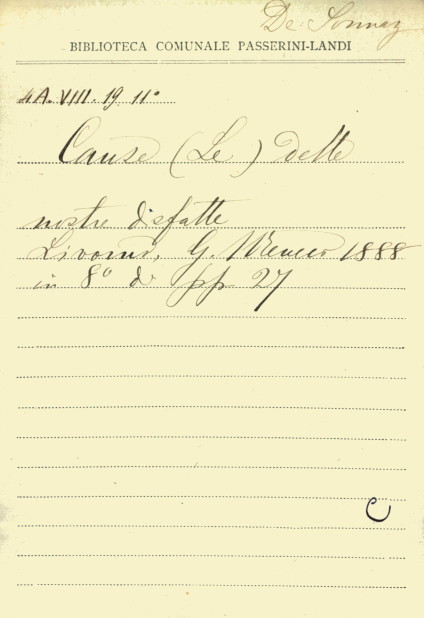 De Sonnaz
BIBLIOTECA COMUNALE PASSERINI-LANDI
4A. VIII. 19 11°
Cause (Le) delle
nostre disfatte
Livorno, G. 1888
in 8° di pp 27
C